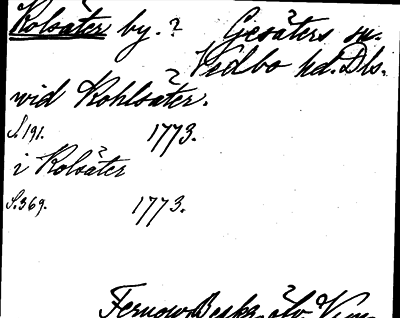 Kolsäter by.? Gesäters sn.
Vedbo hd. Dls.
wid Kohlsäter.
S. 191. 1773.
i Kolsäter
S. 369. 1773.
Fernow Beskr. öfv. Verm.